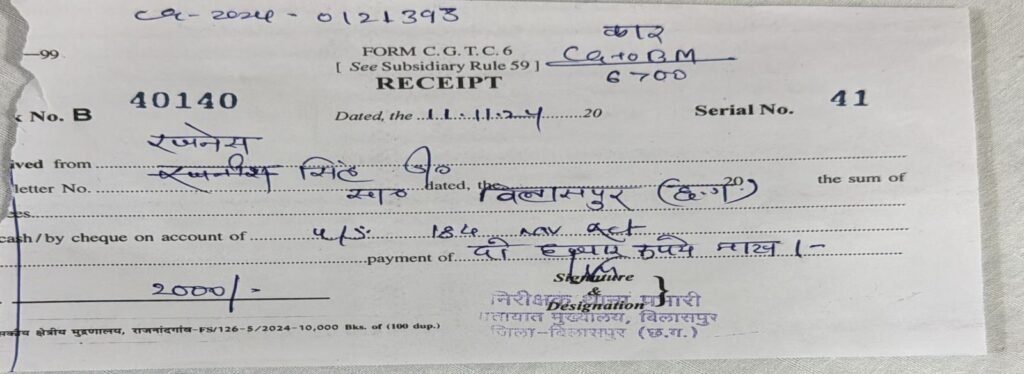 CG-2024-0121393
कार
—99
FORM C.G.T.C.6
CG10BM
[ See Subsidiary Rule 59 ]
6700
RECEIPT
No. B 40140 Dated, the 11.11.24 20 Serial No. 41
रजनेस
ived from रजनीश सिंह
letter No. dated, the 20 the sum of
बिलासपुर (छ.ग.)
cash/by cheque on account of u/s. 184 MV Act
payment of दो हजार रूपये मात्र /-
Signature
&
Designation
2000/-
निरीक्षक थाना प्रभारी
यातायात मुख्यालय, बिलासपुर
जिला-बिलासपुर (छ.ग.)
क्षेत्रीय मुद्रणालय, राजनांदगांव-FS/126-5/2024-10,000 Bks. of (100 dup.)